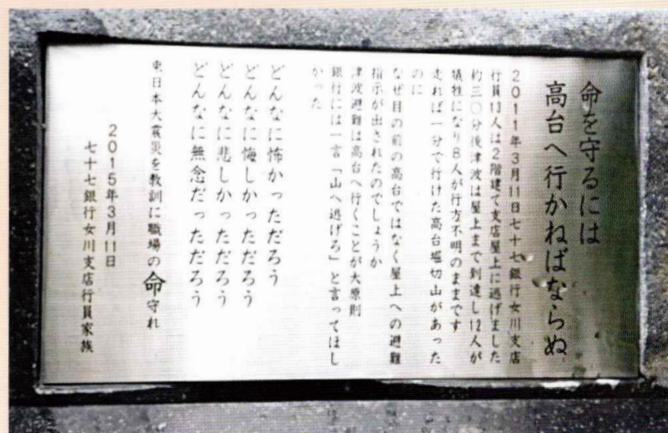 命を守るには
高台へ行かねばならぬ
2011年3月11日七十七銀行女川支店
行員13人は2階建て支店屋上に逃げました
約三〇分後津波は屋上まで到達し12人が
犠牲になり8人が行方不明のままです
走れば一分で行けた高台堀切山があった
のに
なぜ目の前の高台ではなく屋上への避難
指示が出されたのでしょうか
津波避難は高台へ行くことが大原則
銀行には一言「山へ逃げろ」と言ってほし
かった
どんなに怖かっただろう
どんなに悔しかっただろう
どんなに悲しかっただろう
どんなに無念だっただろう
東日本大震災を教訓に職場の命守れ
2015年3月11日
七十七銀行女川支店行員家族